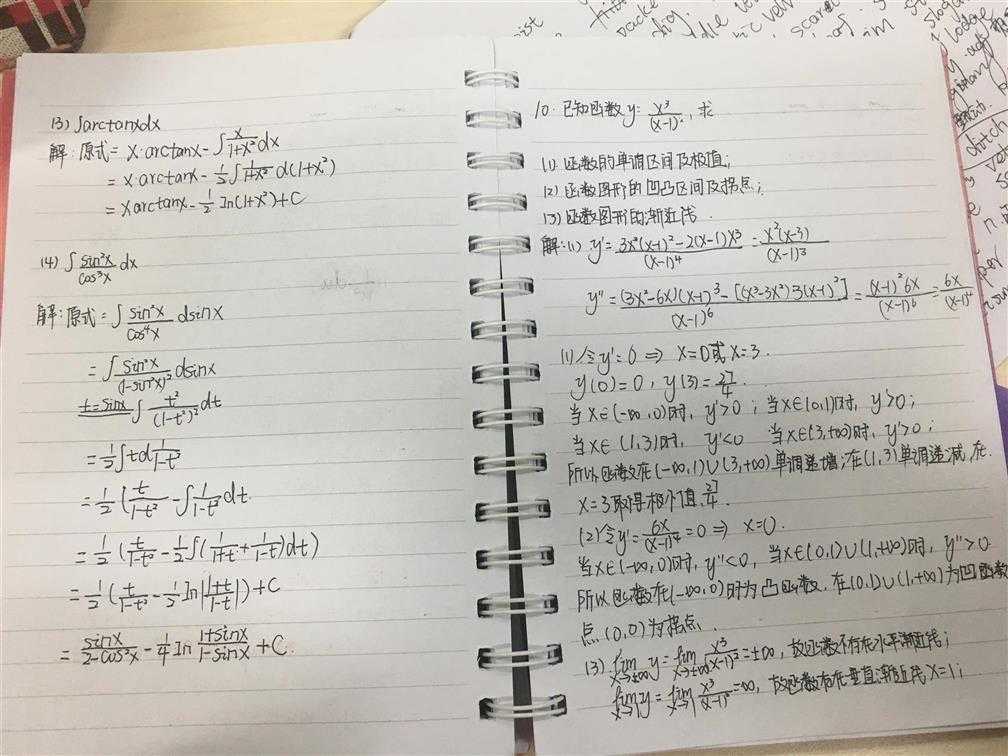 13) ∫arctanxdx
解:原式= x·arctanx - ∫x/(1+x²)dx
= x·arctanx - 1/2∫1/(1+x²)d(1+x²)
= xarctanx - 1/2 In(1+x²)+C
14) ∫sin²x/cos³x dx
解:原式= ∫sin²x/cos⁴x dsinx
= ∫sin²x/(1-sin²x)² dsinx
t=sinx ∫t²/(1-t²)² dt
= 1/2∫td 1/(1-t²)
= 1/2(t/(1-t²) - ∫1/(1-t²)dt
= 1/2(t/(1-t²) - 1/2∫(1/(1+t)+1/(1-t))dt)
= 1/2(t/(1-t²) - 1/2In|(1+t)/(1-t)|)+C
= sinx/(2-cos²x) - 1/4In (1+sinx)/(1-sinx)+C.
10. 已知函数y= x³/(x-1)², 求
(1) 函数的单调区间及极值;
(2) 函数图形的凹凸区间及拐点;
(3) 函数图形的渐近线.
解:(1) y'= (3x²(x-1)²-2(x-1)x³)/(x-1)⁴ = x²(x-3)/(x-1)³
y''= ((3x²-6x)(x-1)³-[(x³-3x²)·3(x-1)²])/(x-1)⁶ = (x-1)²6x/(x-1)⁶ = 6x/(x-1)⁴
(1) 令y'=0 ⇒ x=0或x=3.
y(0)=0, y(3)=27/4.
当x∈(-∞,0)时, y'>0; 当x∈(0,1)时, y'>0;
当x∈(1,3)时, y'<0 当x∈(3,+∞)时, y'>0;
所以函数在(-∞,1)∪(3,+∞)单调递增;在(1,3)单调递减,在
x=3取得极小值27/4
(2)令y'= 6x/(x-1)⁴=0 ⇒ x=0.
当x∈(-∞,0)时, y''<0, 当x∈(0,1)∪(1,+∞)时, y''>0
所以函数在(-∞,0)时为凸函数, 在(0,1)∪(1,+∞)为凹函数
点(0,0)为拐点.
(3) lim x→±∞ y= lim x→±∞ x³/(x-1)²=±∞, 故函数不存在水平渐近线;
lim x→1 y= lim x→1 x³/(x-1)²=∞, 故函数存在垂直渐近线x=1;